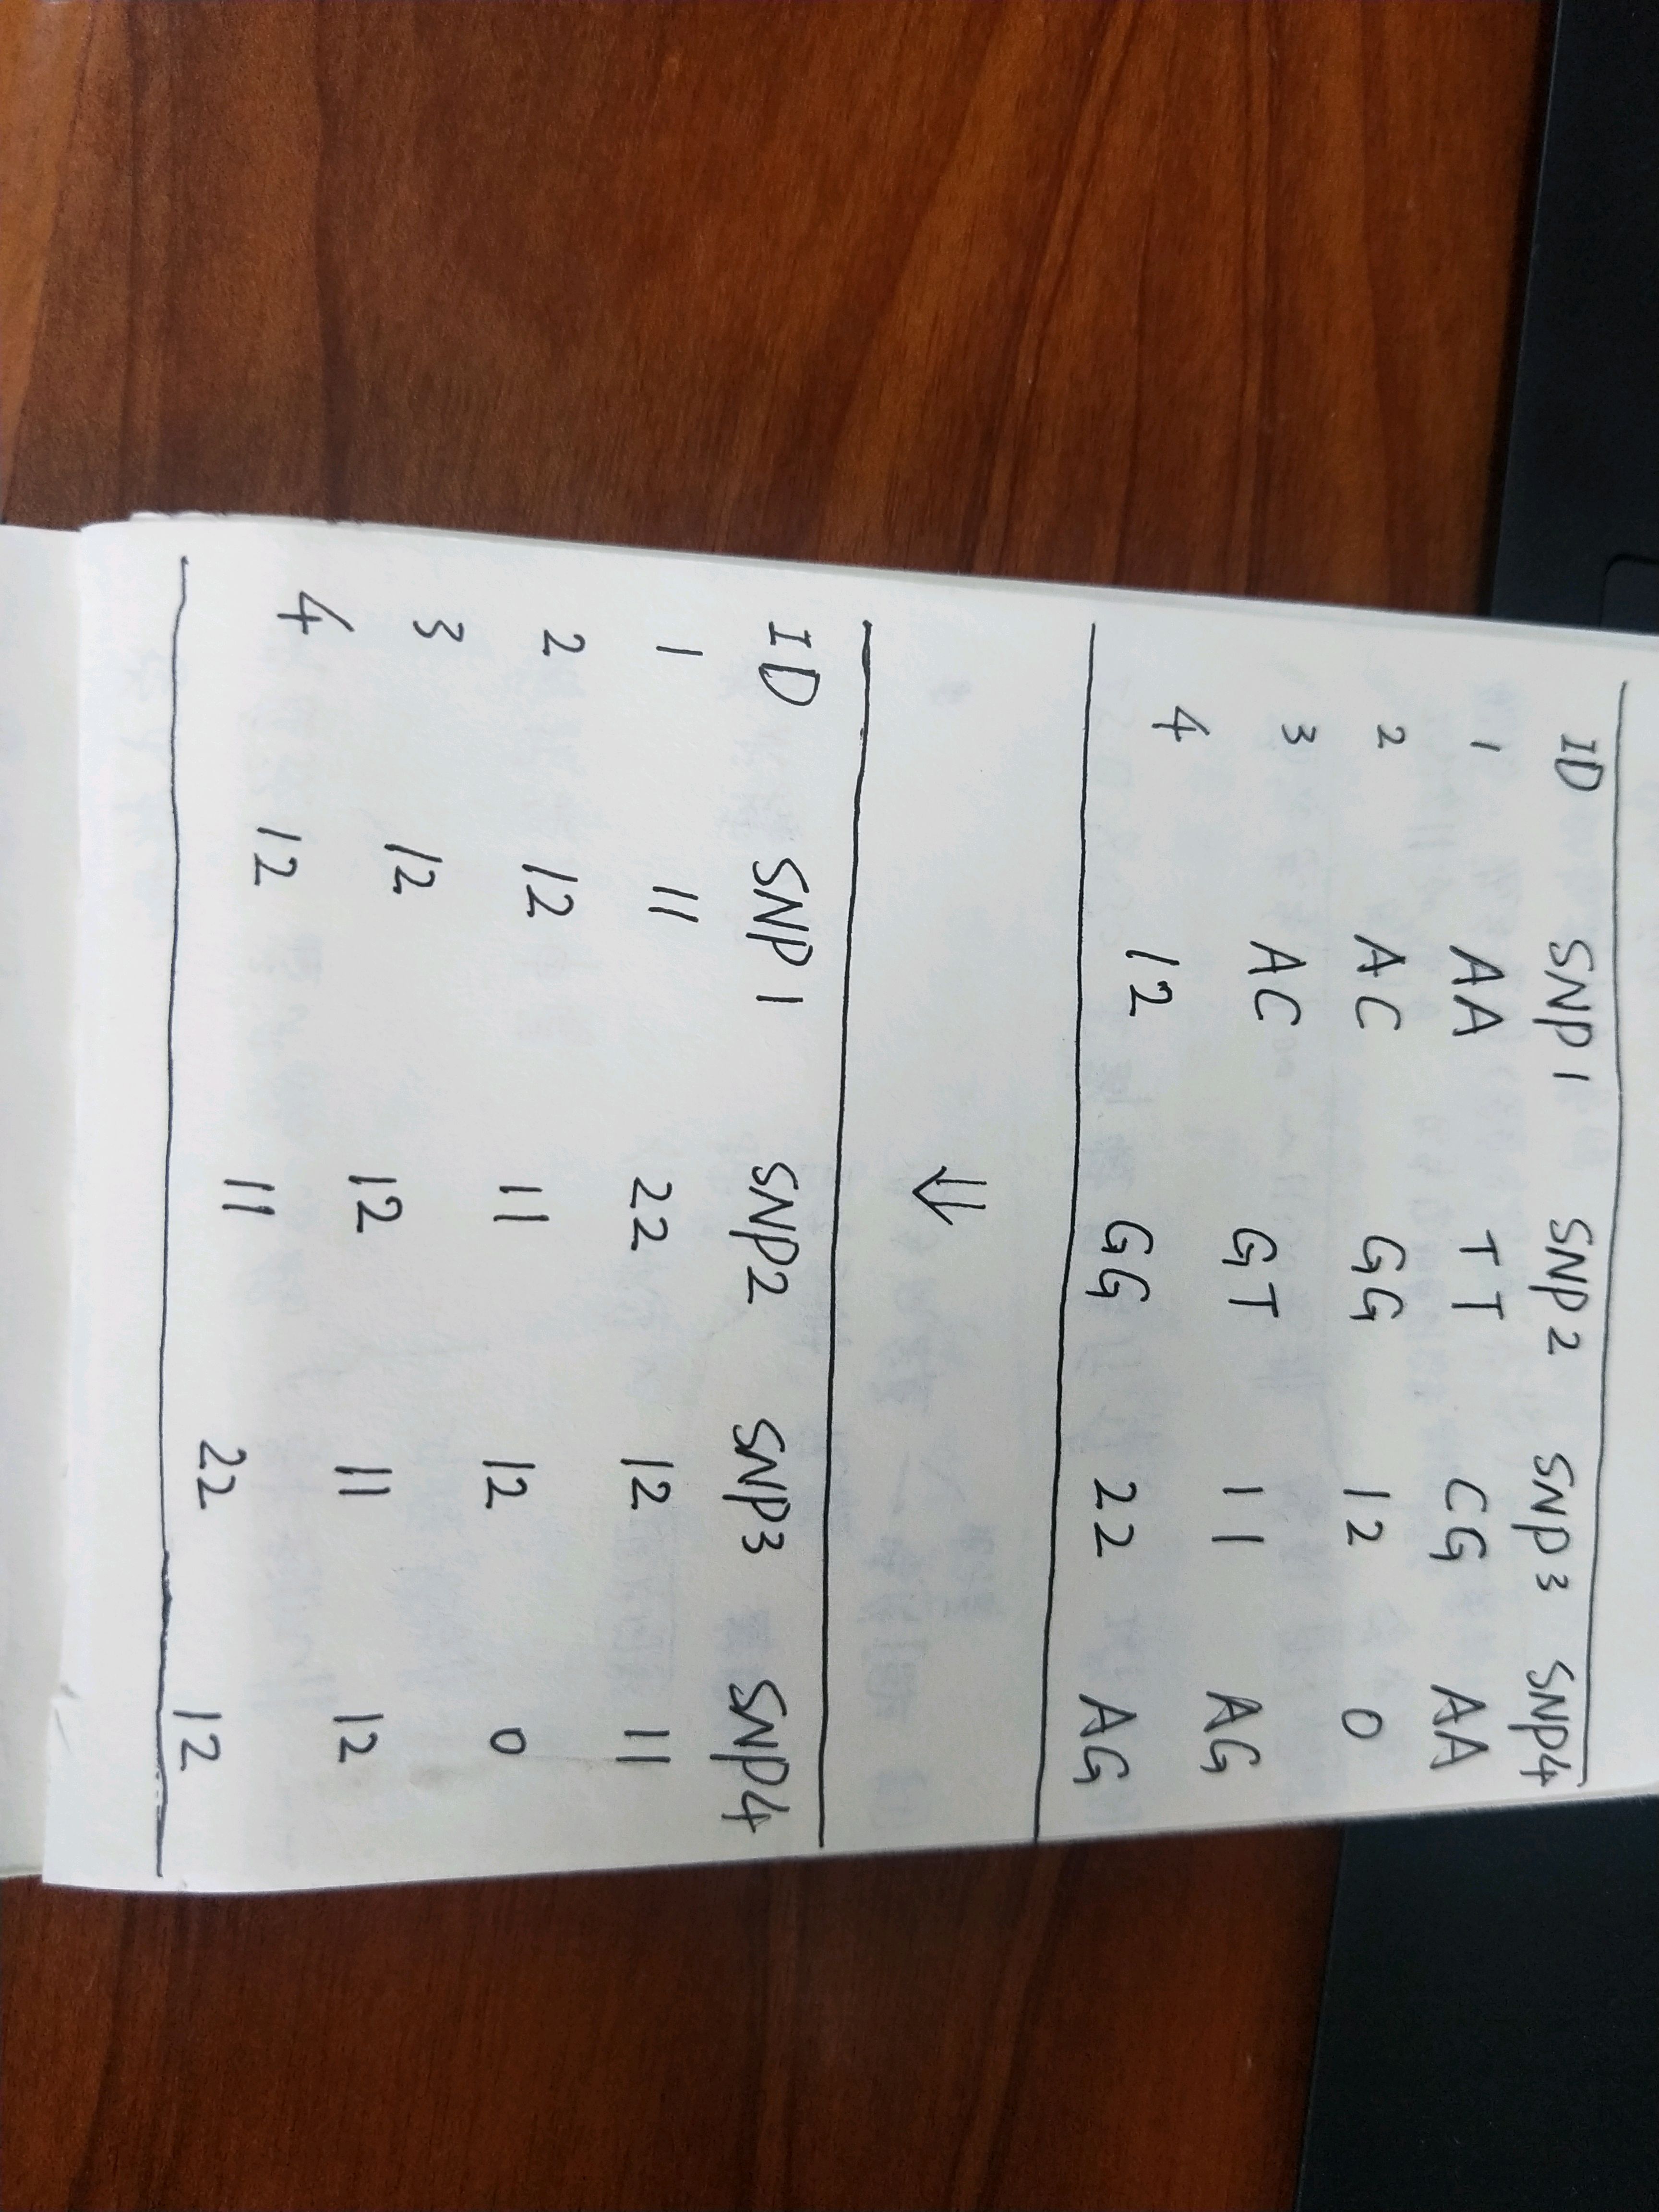 ID SNP1 SNP2 SNP3 SNP4
1 AA TT CG AA
2 AC GG 12 0
3 AC GT 11 AG
4 12 GG 22 AG
⇓
ID SNP1 SNP2 SNP3 SNP4
1 11 22 12 11
2 12 11 12 0
3 12 12 11 12
4 12 11 22 12